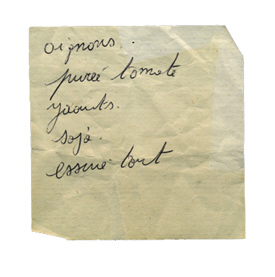 oignons.
pureé tomate
yaourts.
soja.
essuie tout